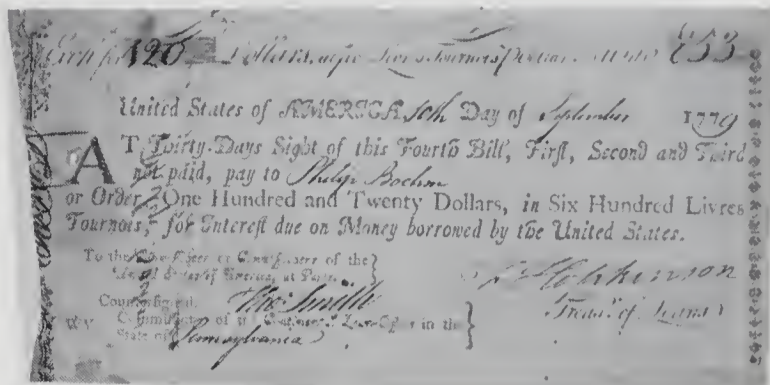 Exch. for 120 Dollars, at five Livres Tournois per Dollar. Numb. 853
United States of AMERICA, 10th Day of September 1779
AT Thirty Days Sight of this Fourth Bill, First, Second and Third
not paid, pay to Philip Boehm
or Order, One Hundred and Twenty Dollars, in Six Hundred Livres
Tournois, for Interest due on Money borrowed by the United States.
To the Commissioner or Commissioners of the
United States of America, at Paris.
F Hopkinson
Countersigned, Thos. Smith
Treasr. of Loans
Commissioner of the Continental Loan-Office in the
State of Pennsylvania